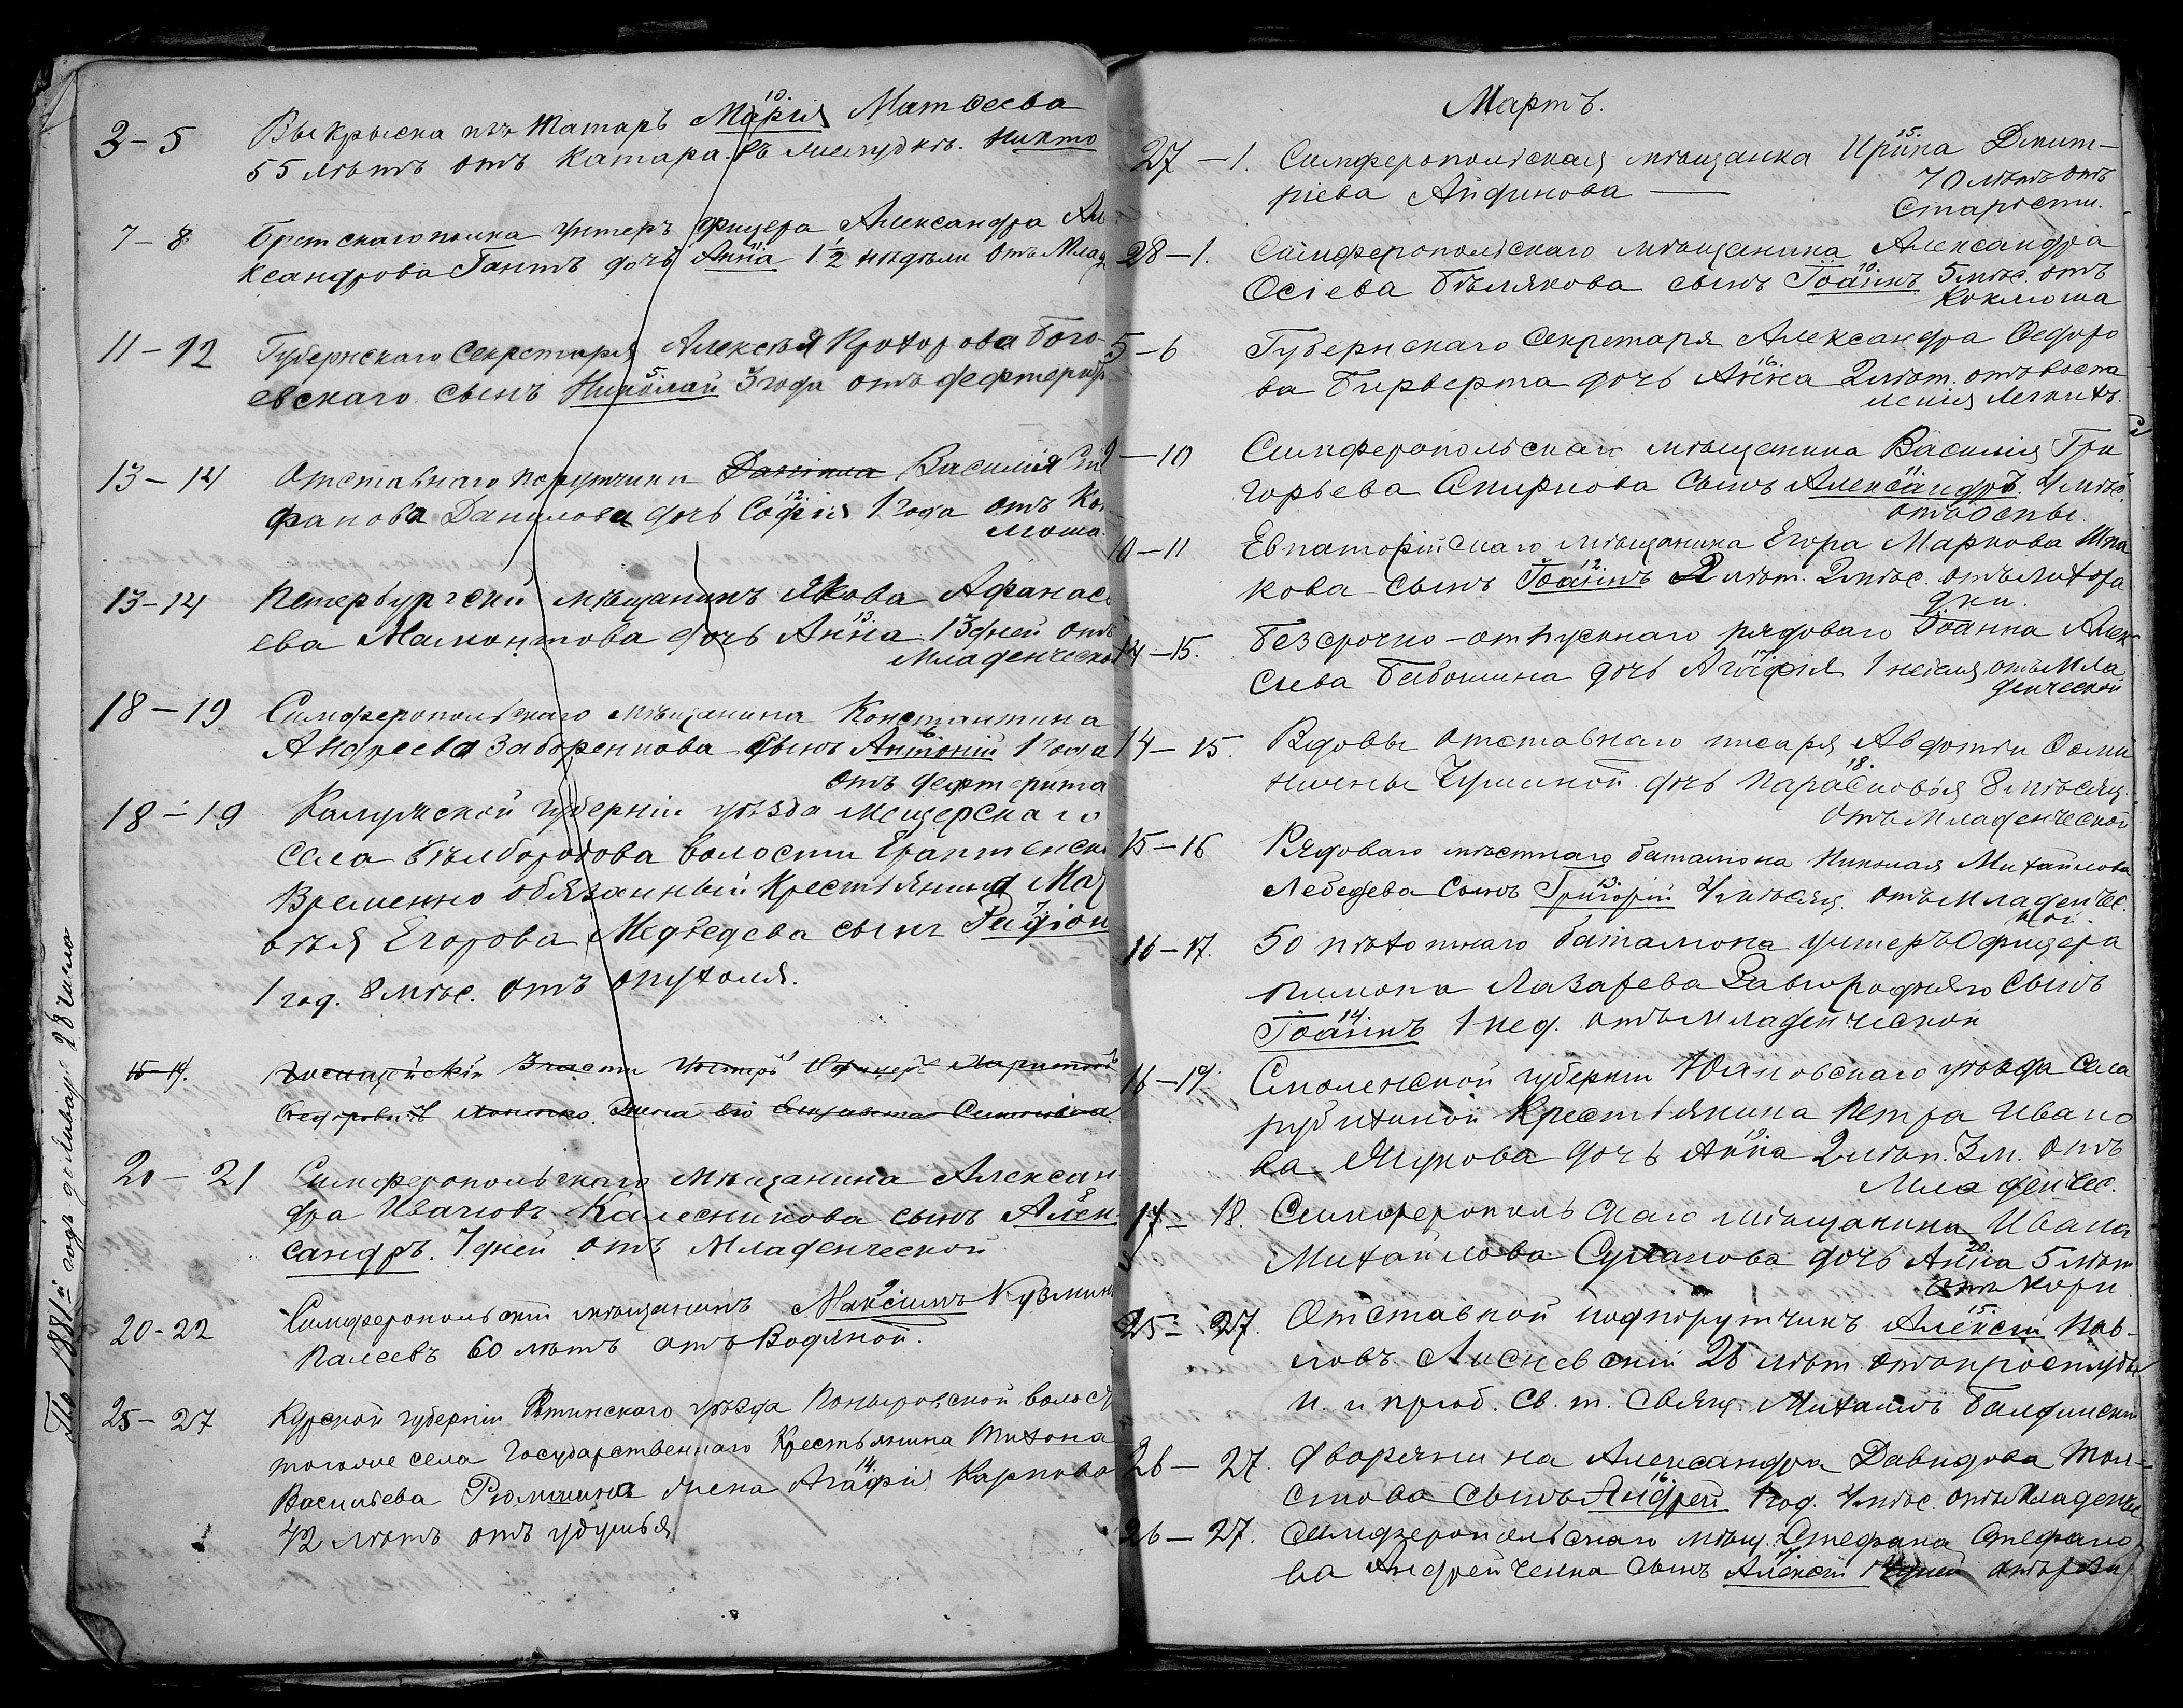 По 1881й годъ до Января 28 числа
3-5 Выкрыска изъ Татаръ Марія 10. Матвеева
55 лѣтъ отъ Катара въ желудкѣ. Никто
7-8 Бретскаго полка унтеръ фицера Александра Але
ксандрова Гантъ дочь Анна 11 1 1/2 недѣли отъ Млад
11-12 Губернскаго Секретаря Алексѣя Прохорова Бого-
евскаго сынъ Николай 5. 3 года отъ дефтерит
13-14 Отставнаго порутчика Данiила Василія Сте
фанова Данилова дочь Софія 12. 1 года отъ Кок
люша.
13-14 Петербургскій мѣщанинъ Якова Афанась
ева Мамонтова дочь Анна 13. 13 дней отъ
Младенческой
18-19 Симферопольскаго мѣщанина Константина
Андреева Заборенкова сынъ Антоній 6. 1 года
отъ дефтерита
18-19 Калужской губерніи уѣзда Мещерскаго
села Бѣлбородова волости
Временно обязанный Крестьянина Мат
вѣя Егорова Медведева сынъ Радіон 7.
1 год. 8 мѣс. отъ опухоли.
15-17. Унтеръ Офицеръ
жена его Елизавета
20-21 Симферопольскаго мѣщанина Алексан
дра Ивановъ Калесникова сынъ Алек 8
сандръ. 7 дней отъ Младенческой
20-22 Симферопольскій мѣщанинъ Максимъ 9 Кузмин
Палеевъ 60 лѣтъ отъ Водяной.
25-27 Курской губерніи уѣзда Поныровской волост
тогоже села Государственнаго Крестьянина Тихона
Васильева Рюмшина жена Агафія 14. Карпова
42 лѣтъ отъ удушья
Мартъ.
27-1. Симферопольская мѣщанка Ирина 15. Дмит-
ріева Айдинова — 70 лѣтъ отъ
Старости.
28-1. Симферопольскаго мѣщанина Александра
Осіева Бѣлякова сынъ Іоаннъ 10. 5 мѣс. отъ
Коклюша
5-6 Губернскаго Секретаря Александра Федоро
ва Гирверта дочь Анна 16. 2 лѣт. отъ воспа
ленія Легкихъ.
9-10 Симферопольскаго мѣщанина Василія Гри
горьева Смирнова Сынъ Александръ 11. 4 мѣс.
отъ оспы.
10-11 Евпаторійскаго мѣщанина Егора Маркова Шпа
кова сынъ Іоаннъ 12. 2 лѣт. 2 мѣс. отъ лихора
дки.
14-15. Безсрочно-отпускнаго рядоваго Іоанна Алек
сѣева Бабошина дочь Агафія 17 1 неделя отъ Мла
денческой
14-15. Вдовы отставнаго писаря Авдотьи Осми
ничены Чушиной дочь Парасковья 18. 8 мѣсяц.
отъ Младенческой
15-16 Рядоваго мѣстнаго баталіона Николая Михайлова
Лебедева Сынъ Григорій 13. 4 мѣсяц. отъ Младенчес.
кой.
16-17. 50 пѣхотнаго баталіона унтеръ Офицера
Пимона Лазарева Завгороднаго Сынъ
Іоаннъ 14. 1 нед. отъ Младенческой
16-17. Смоленской губерніи Юхновскаго уѣзда села
Рубихиной Крестьянина Петра Ивано
ва Жукова дочь Анна 19. 2 лѣт. 3 м. отъ
Младенчес.
17-18. Симферопольскаго мѣщанина Ивана
Михайлова Суханова дочь Анна 20. 5 лѣт
отъ кори
25-27. Отставной подпорутчикъ Алексій 15. Пав-
ловъ Лисневскій 26 лѣт. отъ простуды
И. и пріоб. Св. т. Свящ. Михаилъ Балдинскій
26-27. Дворянина Александра Давидова Тол-
стова сынъ Андрей 16. 1 год. 4 мѣс. отъ Младенчес
26-27. Симферопольскаго мѣщ. Стефана Стефано
ва Андрейченка сынъ Алексій 17